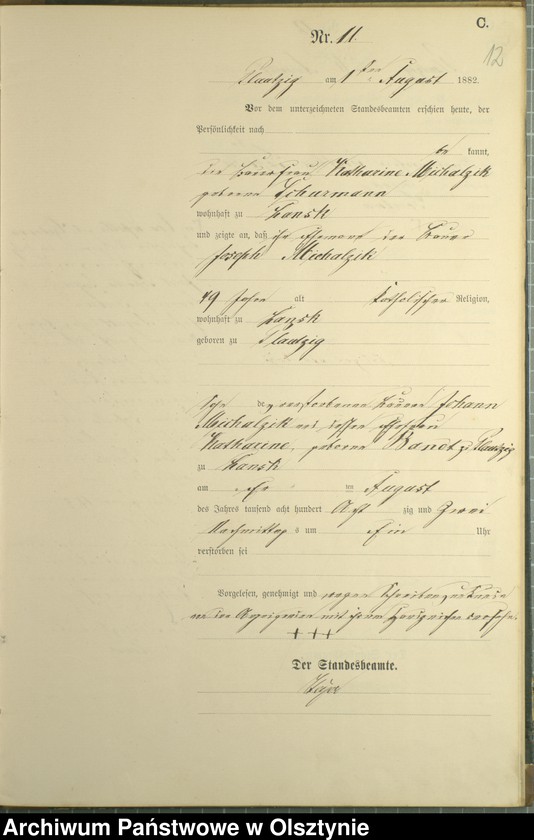 C.
12
Nr. 11
Plautzig am 1ten August 1882.
Vor dem unterzeichneten Standesbeamten erschien heute, der
Persönlichkeit nach
be kannt,
die Bauerfrau Katharine Michalzik
geborene Schurmann
wohnhaft zu Lansk
und zeigte an, daß ihr Ehemann der Bauer
Joseph Michalzik
49 Jahre alt katholischer Religion,
wohnhaft zu Lansk
geboren zu Plautzig
Sohn des verstorbenen Bauer Johann
Michalzik und dessen Ehefrau
Katharine, geborene Bandt Plautzig
zu Lansk
am ten August
des Jahres tausend acht hundert Acht zig und Zwei
Nachmittags um Ein Uhr
verstorben sei
Vorgelesen, genehmigt und wegen Schreibensunkunde
von der Anzeigenden mit ihrem Handzeichen versehen.
+++
Der Standesbeamte.
Archiwum Państwowe w Olsztynie